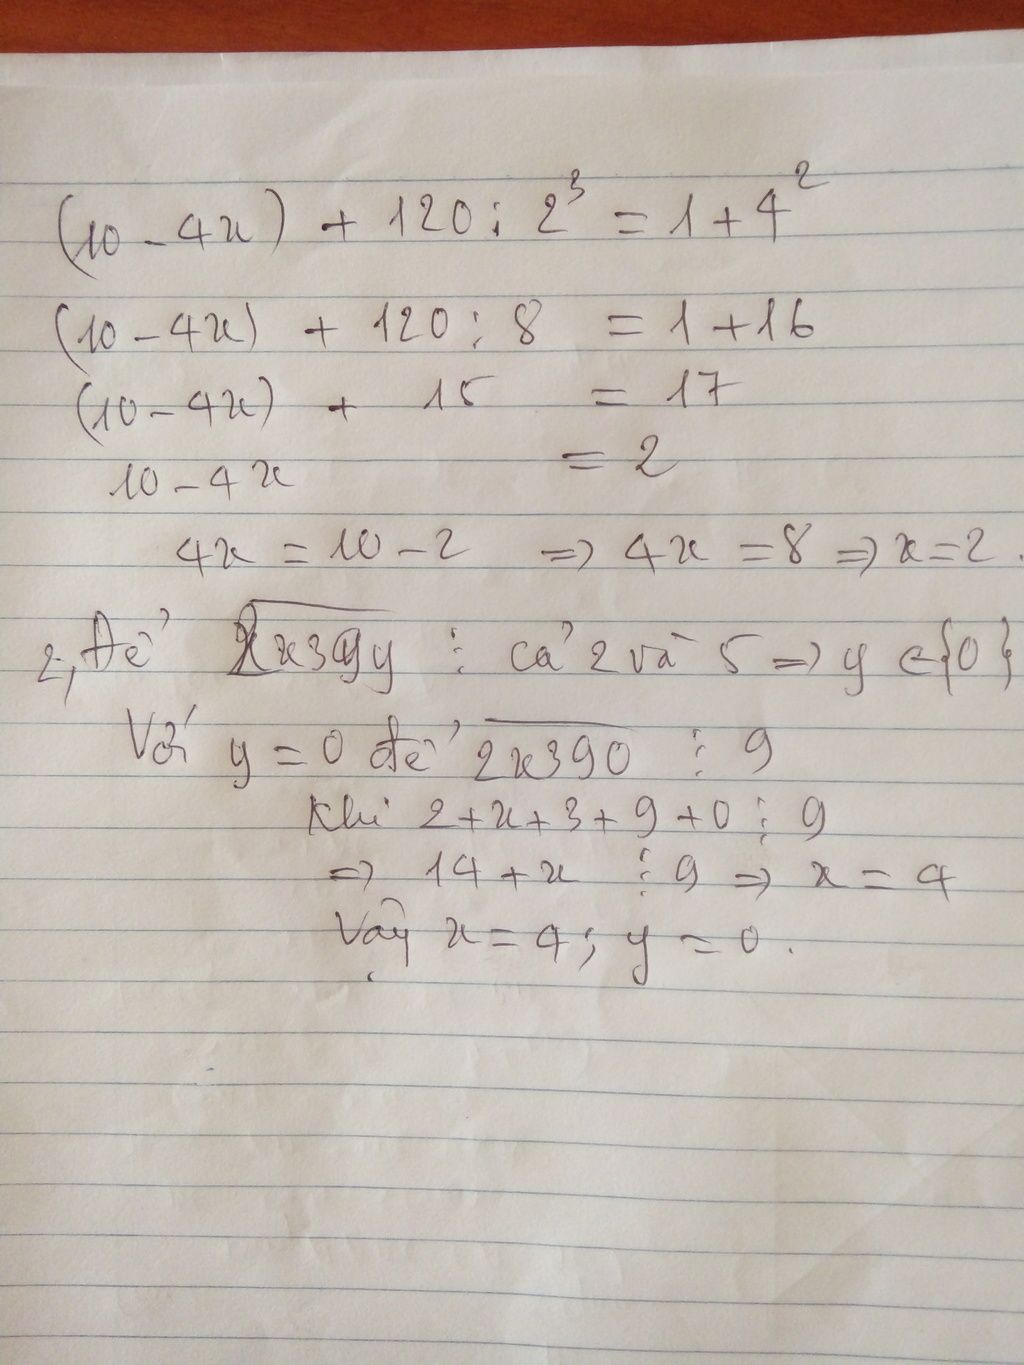 (10 - 4x) + 120 : 2³ = 1 + 4²
(10 - 4x) + 120 : 8 = 1 + 16
(10 - 4x) + 15 = 17
10 - 4x = 2
4x = 10 - 2 => 4x = 8 => x = 2.
2, Để 2x39y ⋮ cả 2 và 5 => y ∈ {0}
Với y = 0 để 2x390 ⋮ 9
Khi 2 + x + 3 + 9 + 0 ⋮ 9
=> 14 + x ⋮ 9 => x = 4
Vậy x = 4 ; y = 0.